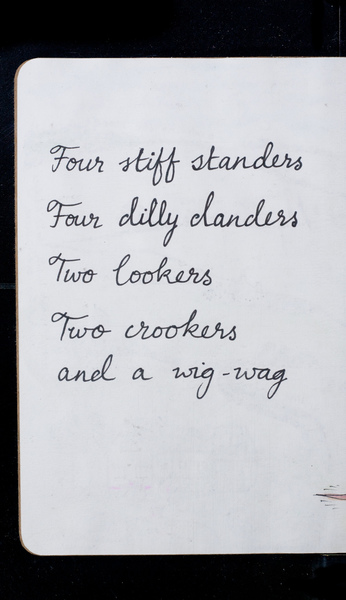 Four stiff standers
Four dilly danders
Two lookers
Two crookers
and a wig-wag